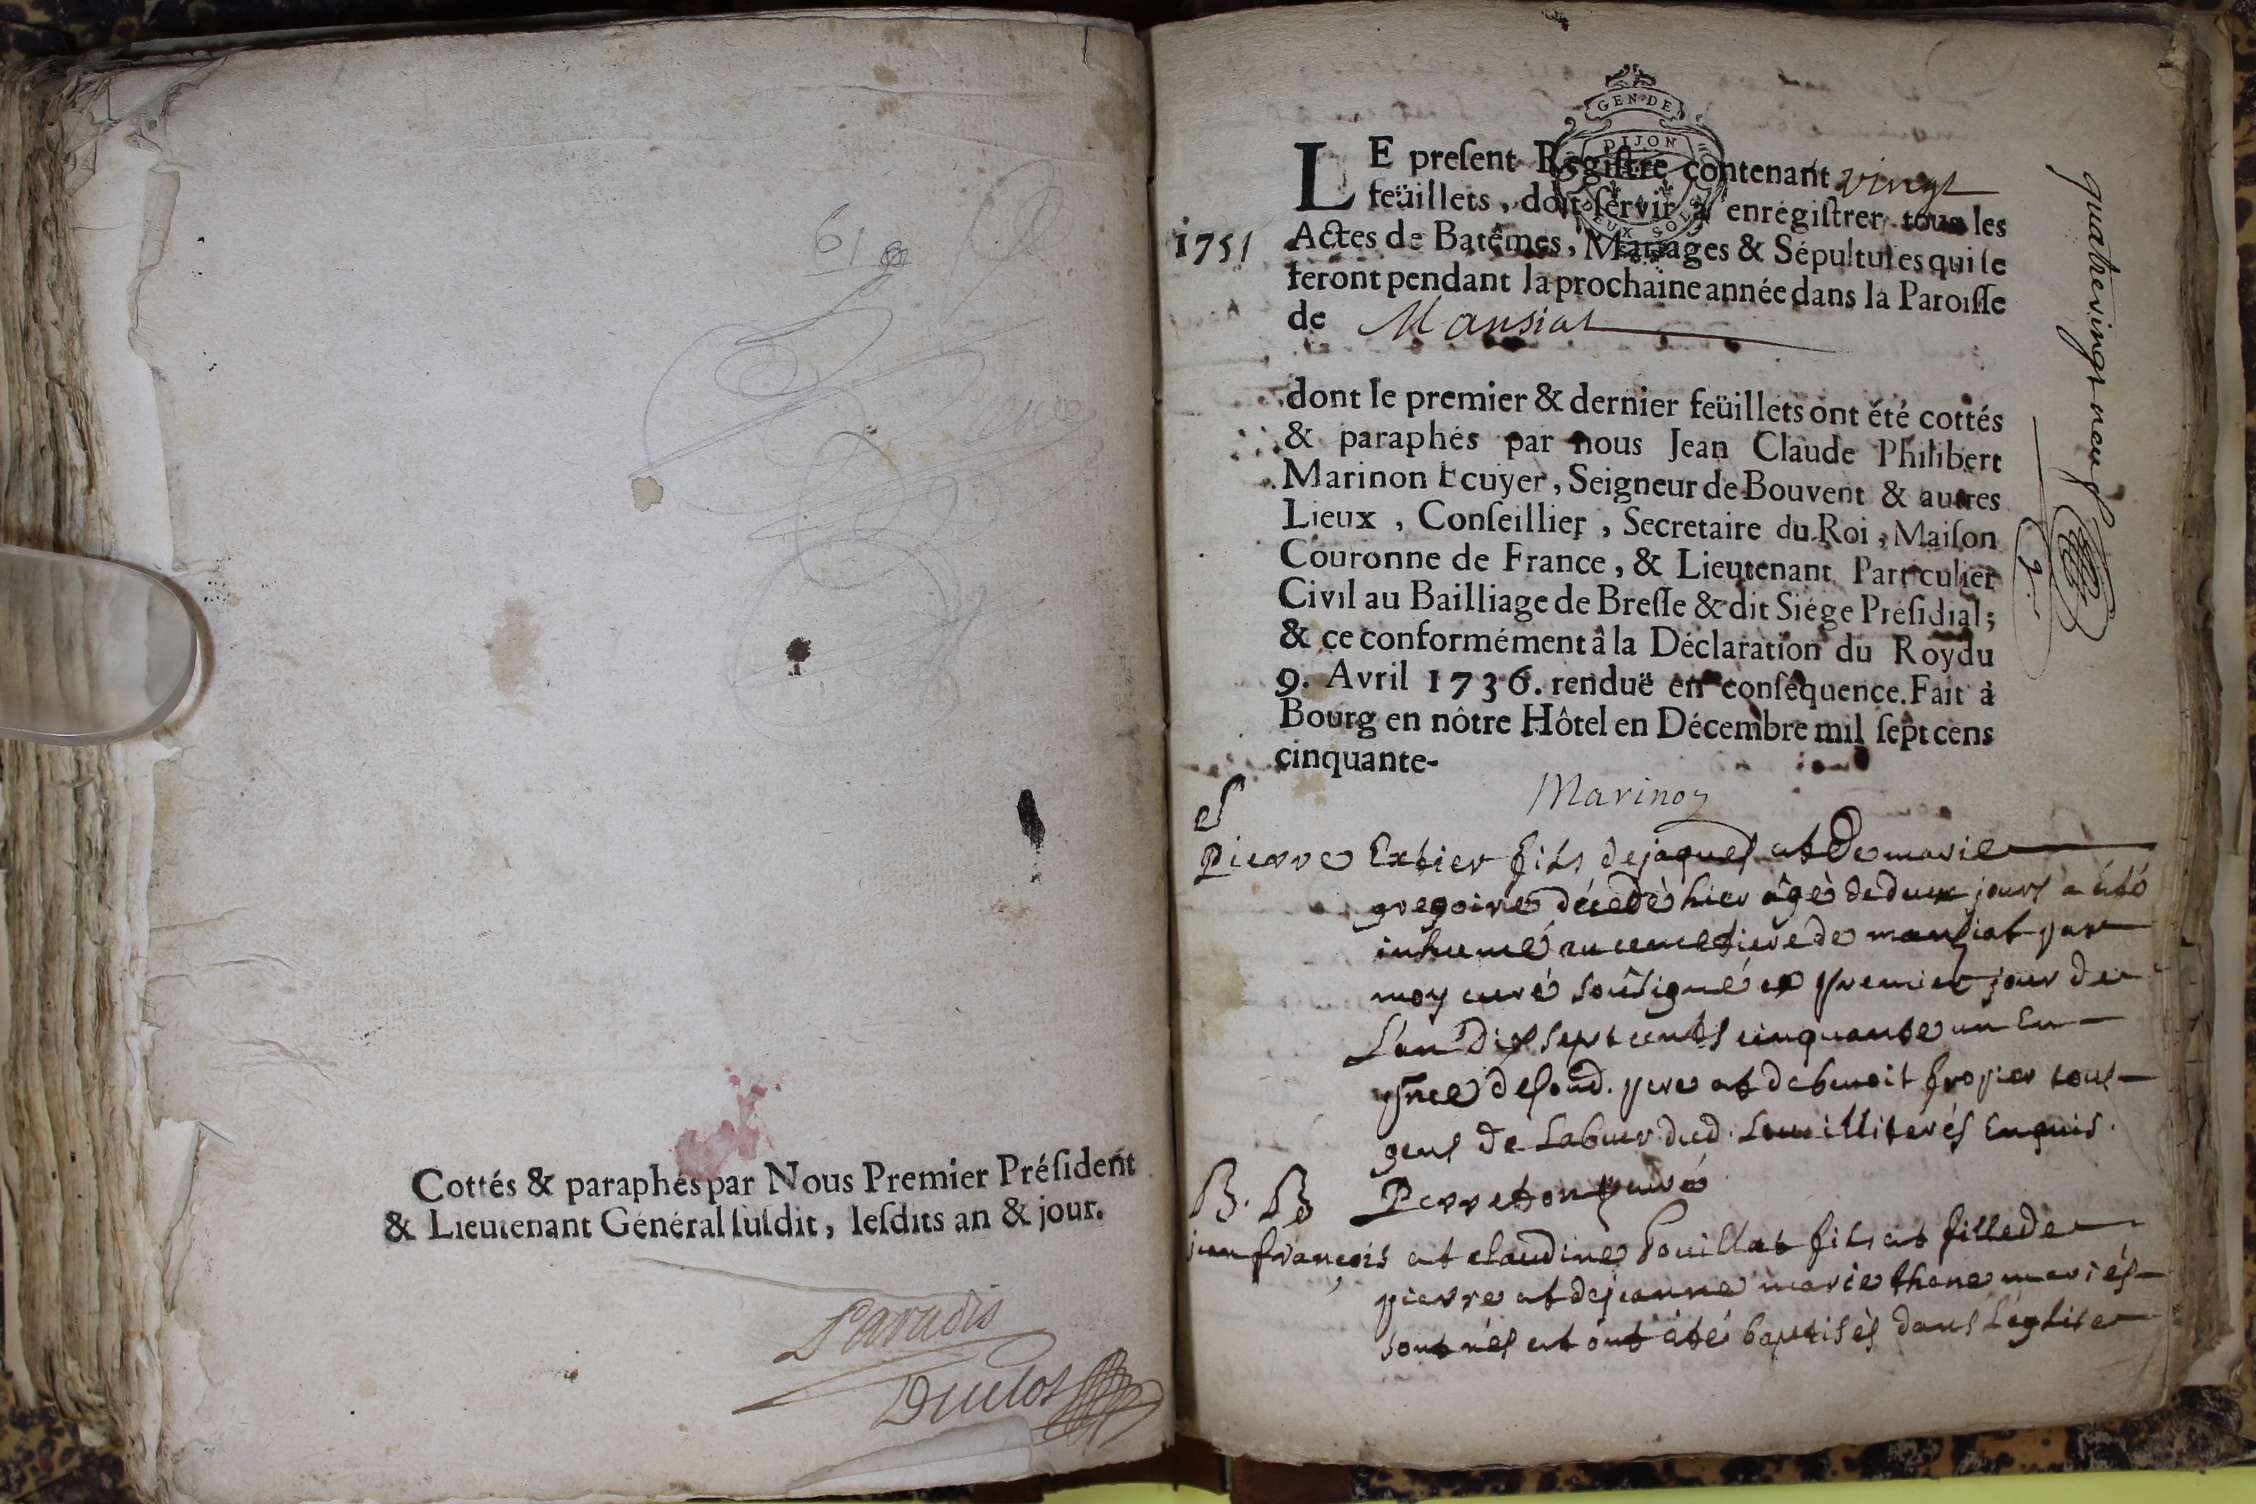 61
Cottés & paraphés par Nous Premier Président
& Lieutenant Général susdit, lesdits an & jour.
Paradis
Duclos
GEN·DE
DIJON
DEUX SOLS
LE preſent Regiſtre contenant vingt
feüillets, doit ſervir à enrégiſtrer tous les
1751
Actes de Batêmes, Mariages & Sépultures qui ſe
feront pendant la prochaine année dans la Paroiſſe
de Mansiat
quatrevingt neuf
2.
dont le premier & dernier feüillets ont été cottés
& paraphés par nous Jean Claude Philibert
Marinon Ecuyer, Seigneur de Bouvent & autres
Lieux, Conſeillier, Secretaire du Roi, Maiſon
Couronne de France, & Lieutenant Particulier
Civil au Bailliage de Breſſe & dit Siége Préſidial;
& ce conformément à la Déclaration du Roy du
9. Avril 1736. renduë en conſéquence. Fait à
Bourg en nôtre Hôtel en Décembre mil ſept cens
cinquante-
Marinon
S
Pierre Extier fils de jaques et de marie
gregoire décedè hier âgè de deux jours a été
inhumé au cemetiere de mansiat par
moy curé soûsigné ce premier jour de
L'an dix sept cents cinquante un En
pñce de soud. pere et de benoit fropier tous
gens de Labeur dud. Lieu illiterés Enquis.
Perreton curé
B. B
jean françois et claudine Pouillat fils et fille de
pierre et de jeanne marie thene mariés
sont nés et ont été baptisès dans L'eglise